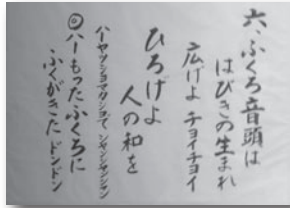 六、ふくろ音頭は
はびきの生まれ
広げよ チョイチョイ
ひろげよ
人の和を
ハーヤッショマカショで シャンシャンシャン
◎ハーもったふくろに
ふくがきた ドンドン